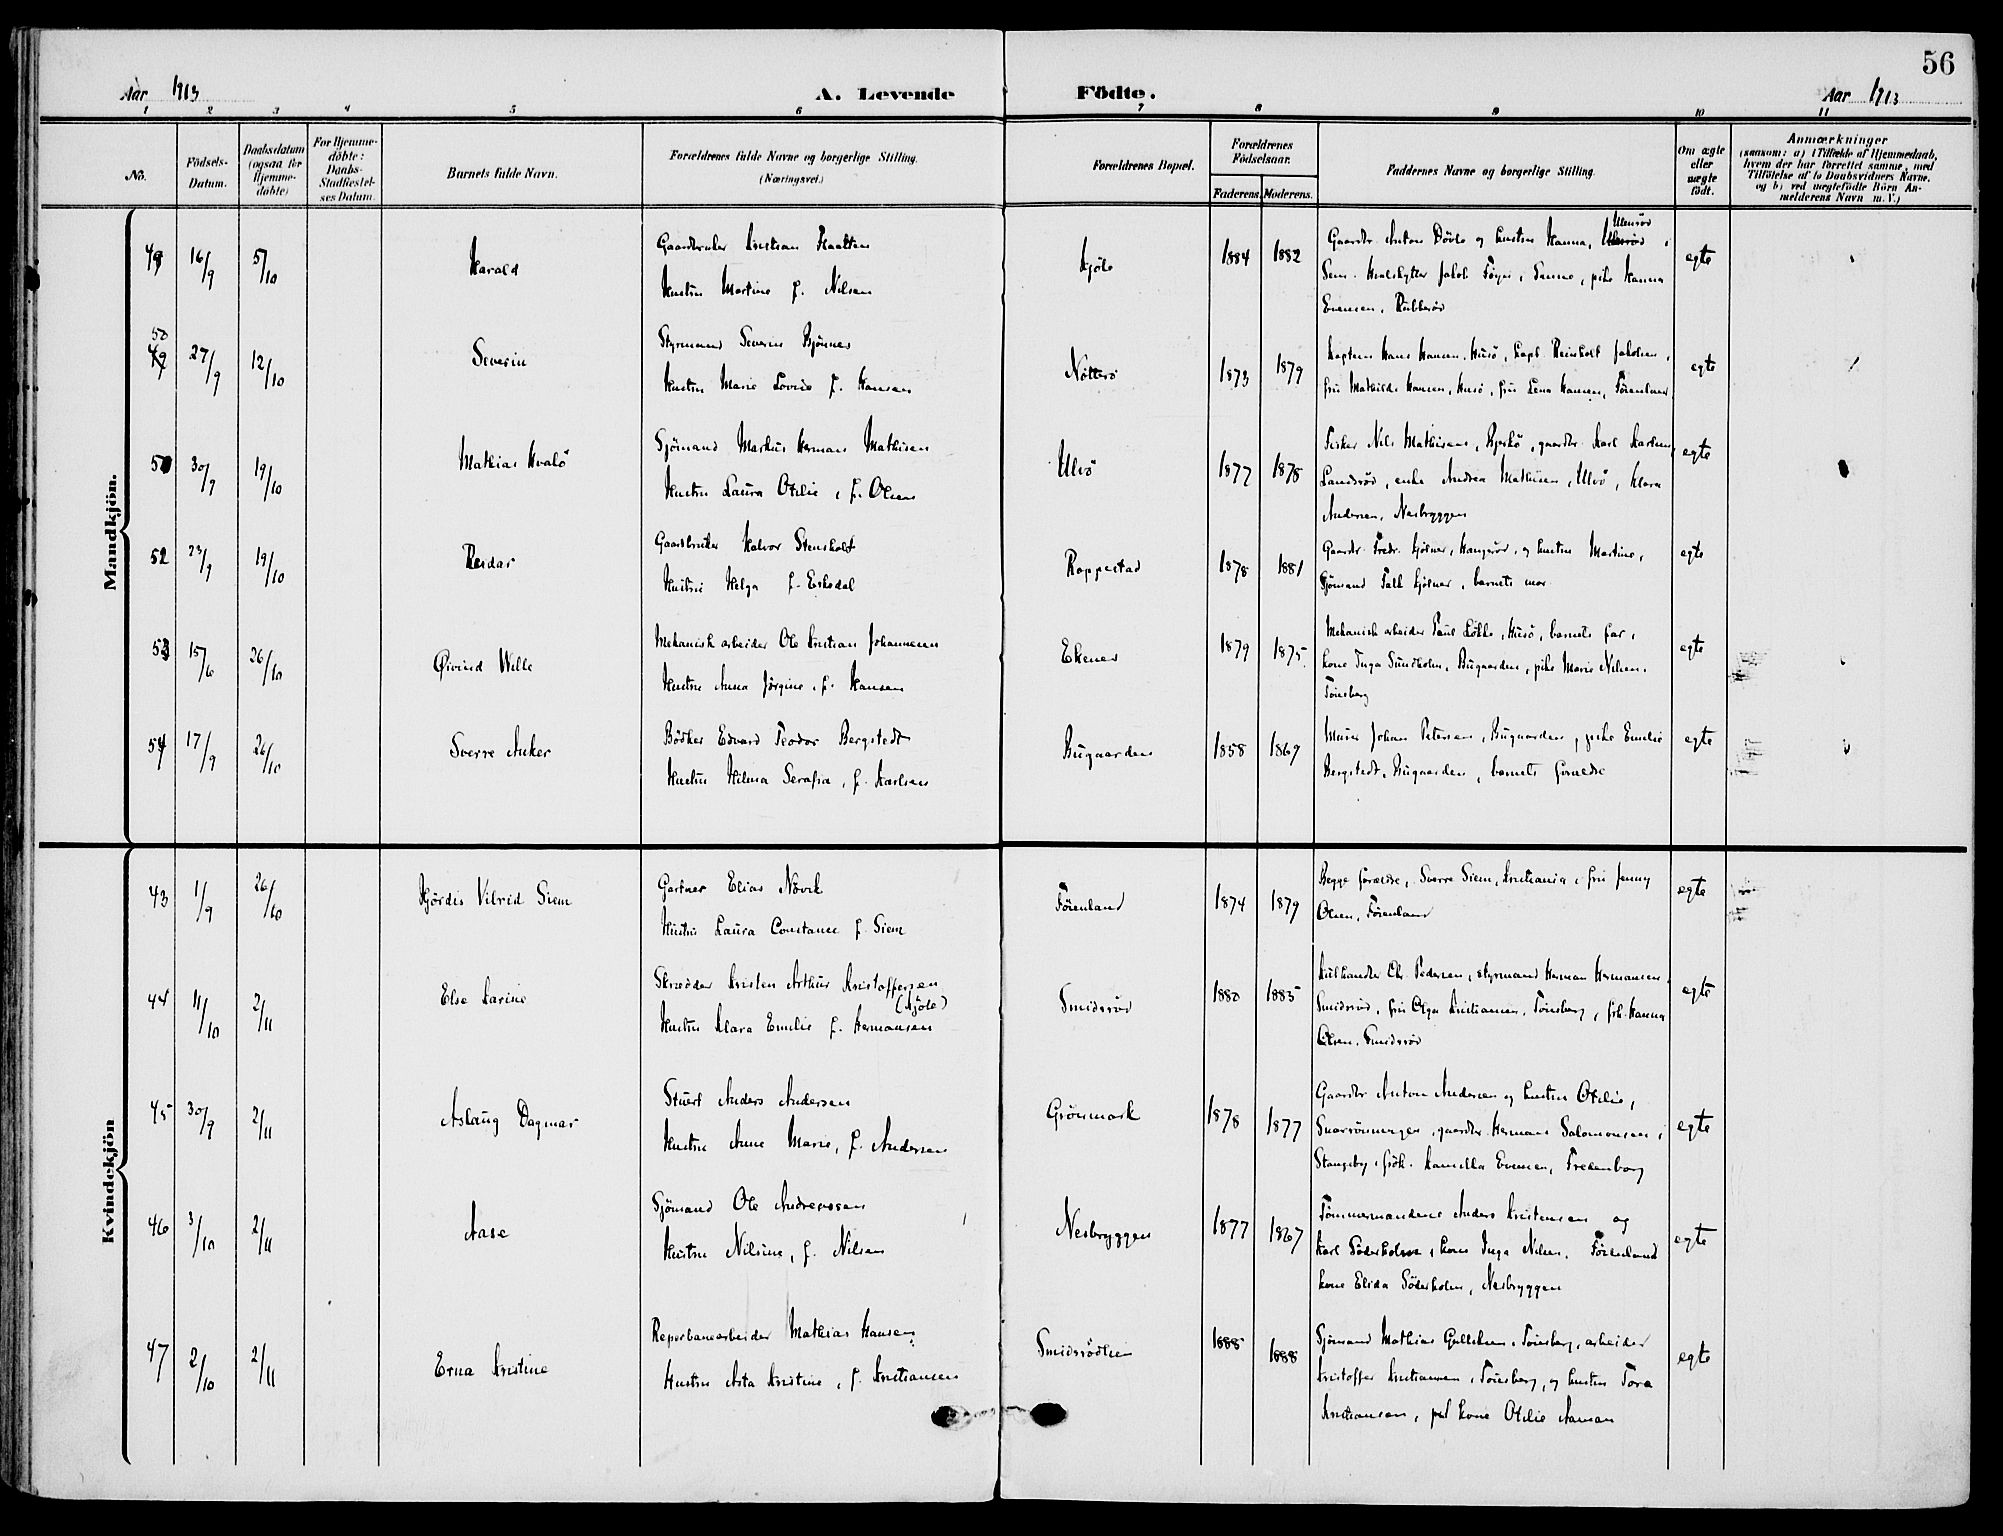 56
Aar 1913
A. Levende Födte.
Aar 1913
1 2 3 4 5 6 7 8 9 10 11
No.
Födsels-
Datum.
Daabsdatum
(ogsaa for
Hjemme-
døbte)
For Hjemme-
döbte:
Daabs-
Stadfæstel-
ses Datum.
Barnets fulde Navn.
Forældrenes fulde Navne og borgerlige Stilling.
(Næringsvei.)
Forældrenes Bopæl.
Forældrenes
Födselsaar.
Faderens. Moderens.
Faddernes Navne og borgerlige Stilling.
Om ægte
eller
uægte
födt.
Anmærkninger
(saasom: a) i Tilfælde af Hjemmedaab,
hvem der har forrettet samme, med
Tilföielse af to Daabsvidners Navne,
og b) ved uægtefödte Börn An-
melderens Navn m. V.)
Mandkjön.
49 16/9 5/10 Harald
Gaardbruker Kristian Flaatten
Hustru Martine f. Nilsen
Kjöle 1884 1882
Gaardbr. Anton Dövle og hustru Hanna,
Sem. Hvalskytter Jakob Föyn, Sanne, pike Hanna
Evensen, Rubberöd
egte
50 27/9 12/10 Severin
Styrmand Severin Bjönnes
Hustru Marie Lovise f. Hansen
Nötterö 1873 1879
Kaptein Hans Hansen, Husö, Kapt. Reinholt Jakobsen,
fru Mathilde Hansen, Husö, fru Lena Hansen, Föienland
egte
51 30/9 19/10 Mathias Hvalö
Sjömand Markus Herman Mathisen
Hustru Laura Otilie, f. Olsen
Ulvö 1877 1878
Fisker Nils Mathisens, Bjerkö, gaardbr. Karl Karlsen,
Landsröd, enke Andrea Mathisen, Ulvö, Klara
Andersen, Nesbryggen
egte
52 23/9 19/10 Reidar
Gaardbruker Halvor Stensholt
Hustru Helga f. Eskedal
Roppestad 1878 1881
Gaardbr. Fredr. Hjolner, Haugeröd, og hustru Martine,
Sjömand Falk Hjolner, barnets mor
egte
53 15/6 26/10 Øivind Wille
Mekanisk arbeider Ole Kristian Johannesen
Hustru Anna Jörgine, f. Hansen
Ekenes 1879 1875
Mekanisk arbeider Paul Lökke, Husö, barnets far,
kone Inga Sundholm, Bugaarden, pike Marie Nilsen,
Tönsberg
egte
54 17/9 26/10 Sverre Anker
Bödker Edvard Teodor Bergstedt
Hustru Hilma Serafia, f. Karlsen
Bugaarden 1858 1869
Murer Johan Petersen, Bugaarden, pike Emelie
Bergstedt, Bugaarden, barnets forældre
egte
Kvindekjön
43 1/9 26/10 Hjördis Vilrid Siem
Gartner Elias Növik
Hustru Laura Constance f. Siem
Föienland 1874 1879
Begge forældre, Sverre Siem, Kristiania, fru Jenny
Olsen, Föienland
egte
44 11/10 2/11 Else Karine
Skrædder Kristen Arthur Kristoffersen
(Kjöle)
Hustru Klara Emilie f. Hermansen
Smidsröd 1880 1885
Kulhandler Chr. Pedersen, styrmand Herman Hermansen,
Smidsröd, fru Olga Kristiansen, Tönsberg, frk. Hanna
Olsen, Smidsröd
egte
45 30/9 2/11 Aslaug Dagmar
Stuert Anders Andersen
Hustru Anne Marie, f. Andersen
Grönmark 1878 1877
Gaardbr Anton Andersen og hustru Otilie,
Snarsönningen, gaardbr. Herman Salomonsen,
Stangeby, frök. Kamilla Evensen, Fredenborg
egte
46 3/10 2/11 Aase
Sjömand Ole Andreassen
Hustru Nilsine, f. Nilsen
Nesbryggen 1877 1867
Tömmermændene Anders Kristensen og
Karl Söderholm, kone Inga Nilsen, Föienland
kone Elida Söderholm, Nesbryggen
egte
47 2/10 2/11 Erna Kristine
Reperbanearbeider Mathias Hansen
Hustru Asta Kristine, f. Kristiansen
Smidsrödlien 1885 1888
Sjömand Mathias Gulliksen, Tönsberg, arbeider
Kristoffer Kristiansen, Tönsberg, og hustru Tora
Kristiansen, kone Otilie Aaman
egte